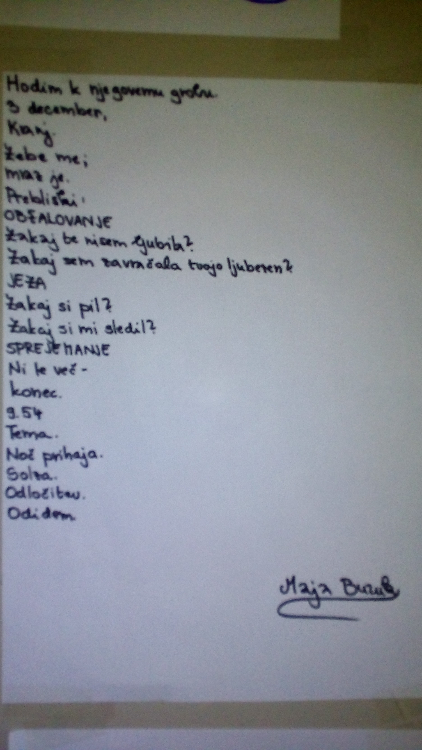 Hodim k njegovemu grobu.
3 december,
Kranj.
Zebe me;
mraz je.
Prebliski:
OBŽALOVANJE
Zakaj te nisem ljubila?
Zakaj sem zavračala tvojo ljubezen?
JEZA
Zakaj si pil?
Zakaj si mi sledil?
SPREJEMANJE
Ni te več -
konec.
9.54
Tema.
Noč prihaja.
Solza.
Odločitev.
Odidem.
Maja